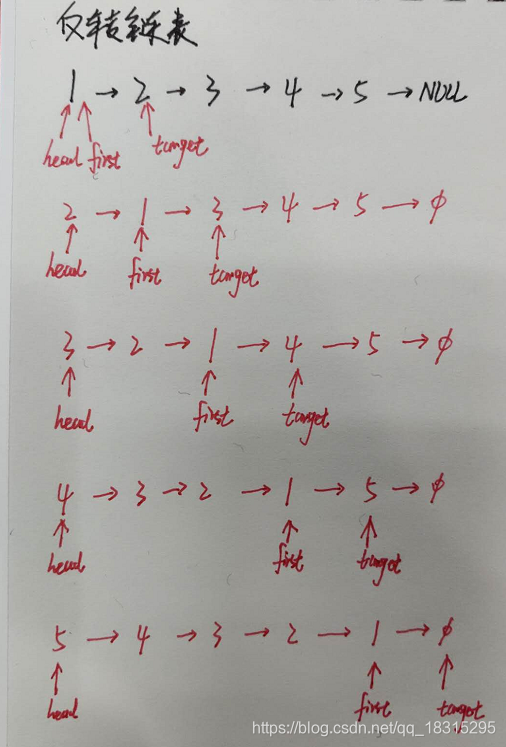 反转链表
1 → 2 → 3 → 4 → 5 → NULL
head first target
2 → 1 → 3 → 4 → 5 → ∅
head first target
3 → 2 → 1 → 4 → 5 → ∅
head first target
4 → 3 → 2 → 1 → 5 → ∅
head first target
5 → 4 → 3 → 2 → 1 → ∅
head first target
https://blog.csdn.net/qq_18315295